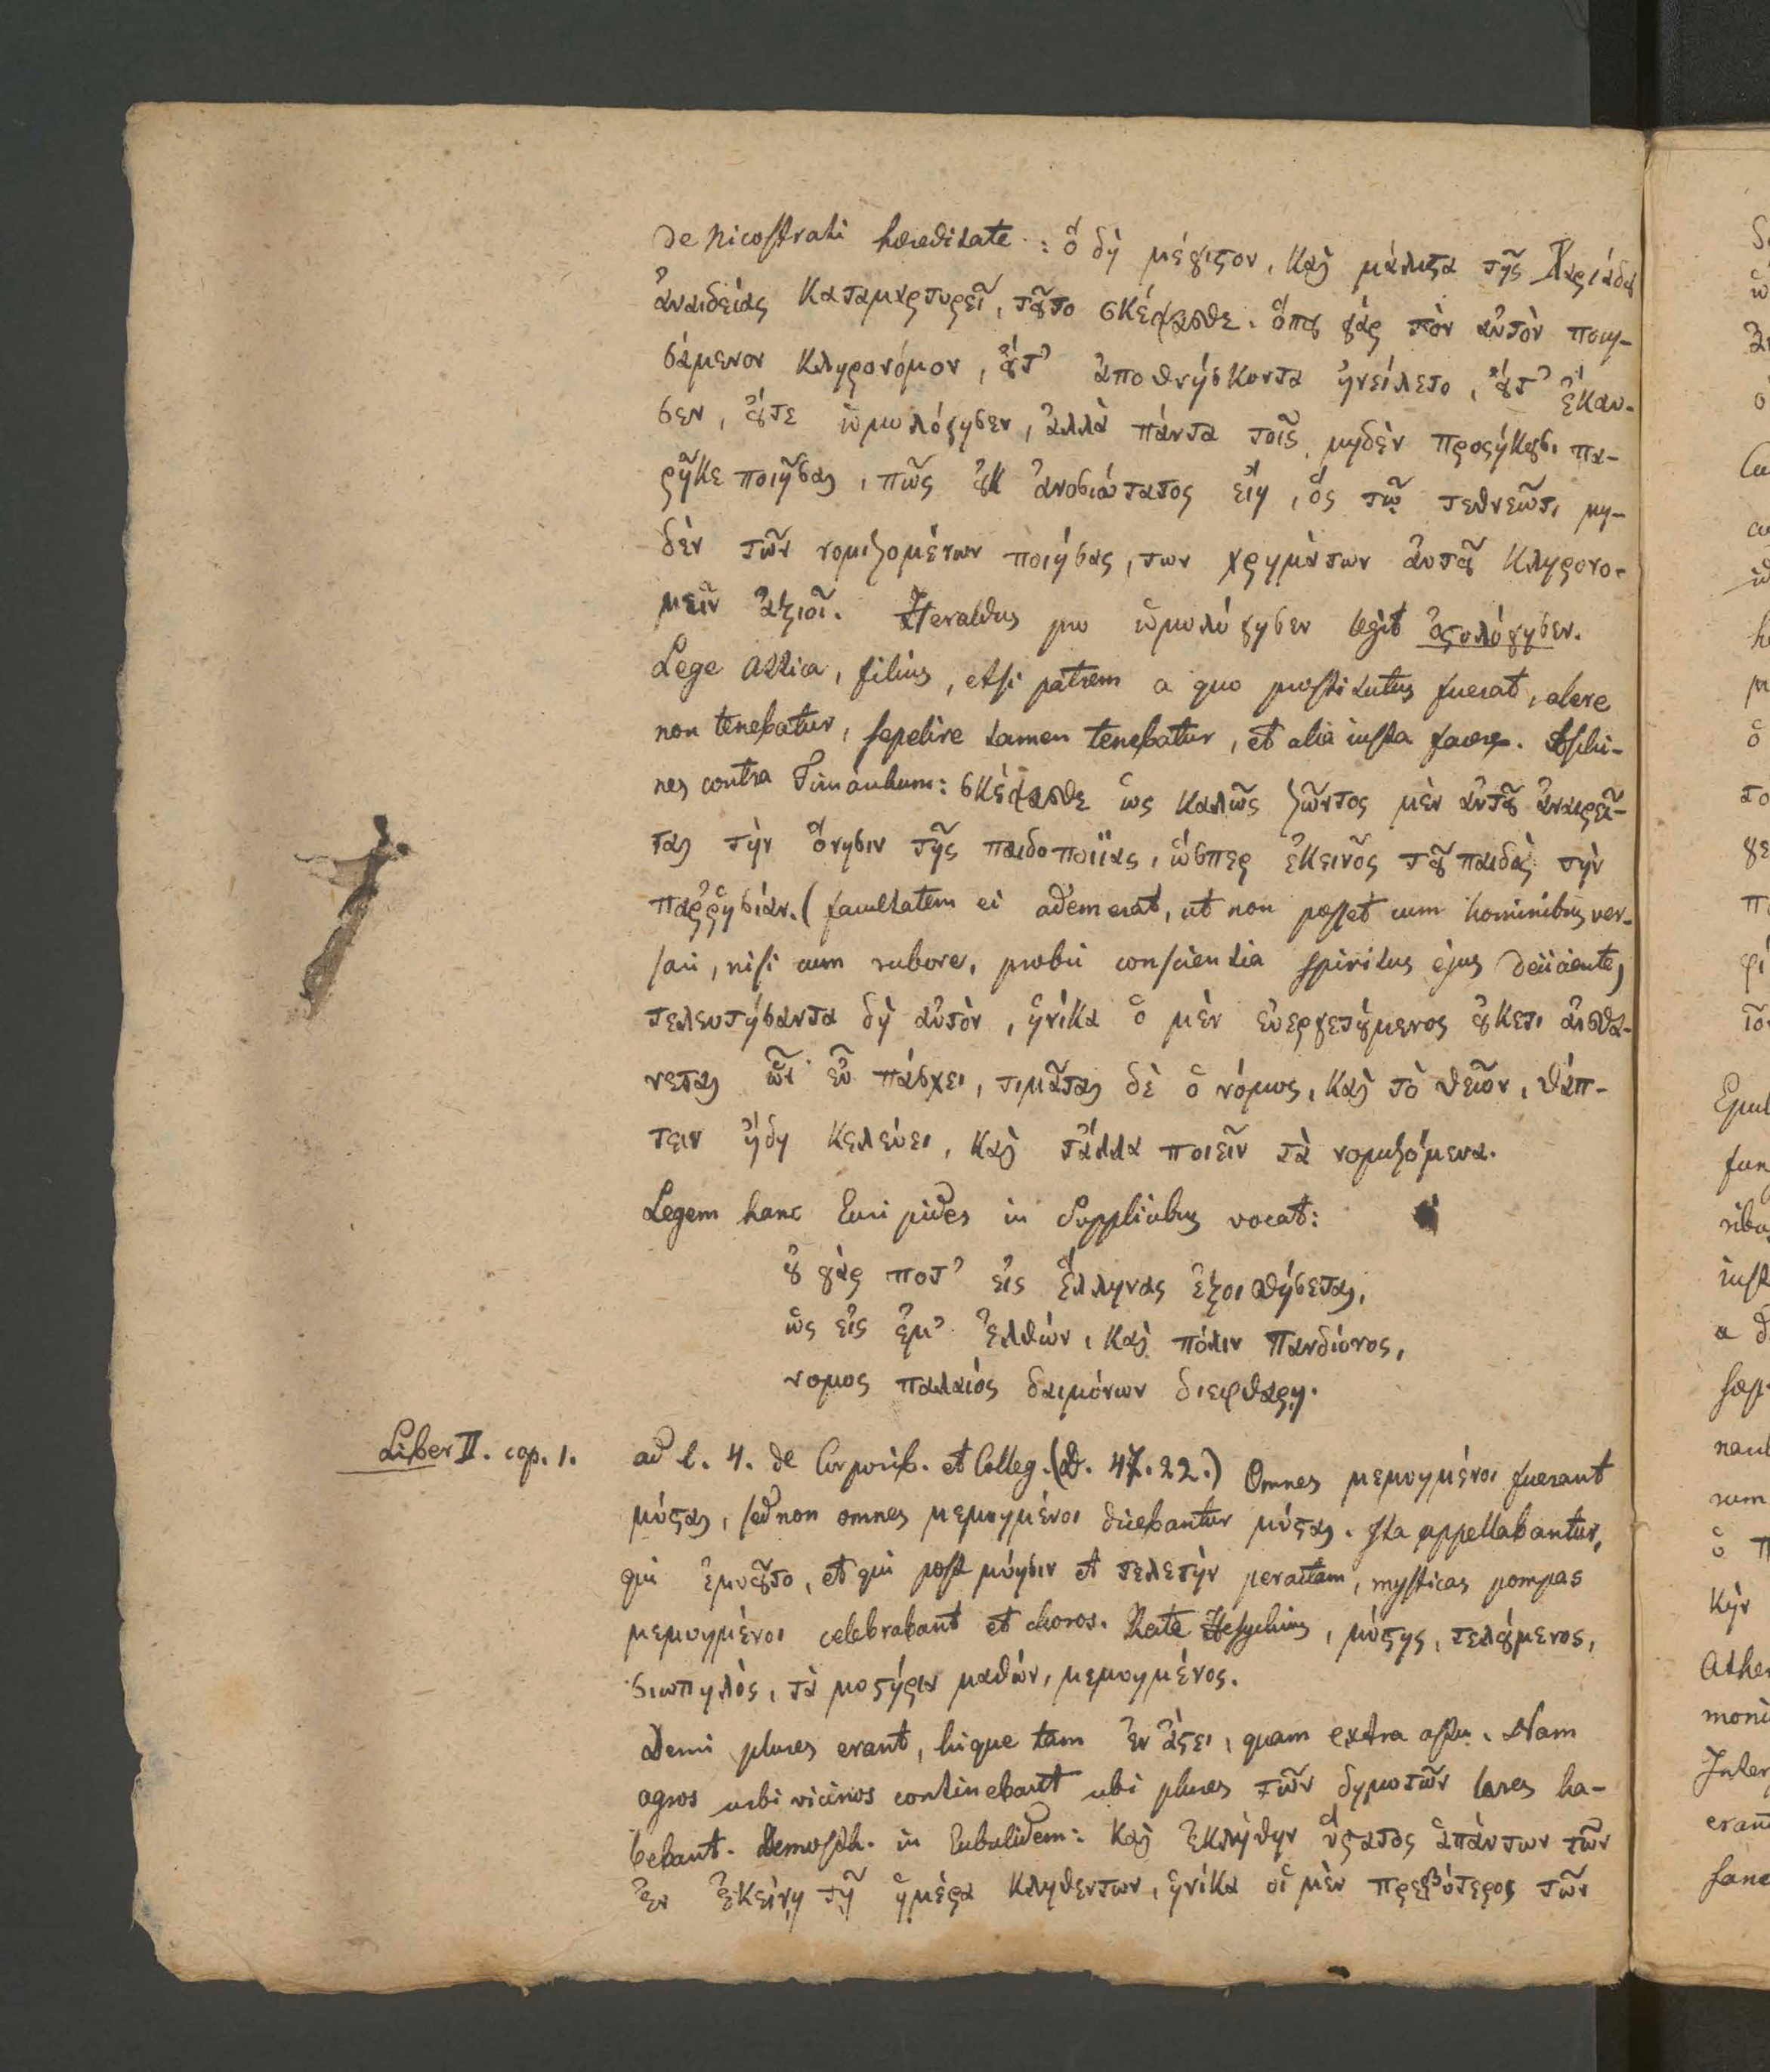 De Nicostrati haereditate: ὃ δὴ μέγιστον, καὶ μάλιστα τῆς Χαριάδου
ἀναιδείας καταμαρτυρεῖ, τοῦτο σκέψασθε. ὅπου γάρ τὸν αὐτὸν ποιη-
σάμενον κληρονόμον, οὔτ' ἀποθνήσκοντα ἠνείλετο, οὔτ' ἔκαυ-
σεν, οὔτε ὡμολόγησεν, ἀλλὰ πάντα τοῖς μηδὲν προσήκουσι πα-
ρῆκε ποιῆσαι, πῶς οὐκ ἀνοσιώτατος εἴη, ὅς τῷ τεθνεῶτι μη-
δὲν τῶν νομιζομένων ποιήσας, των χρημάτων αὐτοῦ κληρονο-
μεῖν ἀξιοῖ. Heraldus pro ὡμολόγησεν legit ὀςολόγησεν.
Lege Attica, filius, etsi patrem a quo prostitutus fuerat, alere
non tenebatur, sepelire tamen tenebatur, et alia iusta facere. Aeschi-
nes contra Timarchum: σκέψασθε ὡς καλῶς ζῶντος μὲν αὐτοῦ ἀναιρεῖ-
ται τὴν ὄνησιν τῆς παιδοποιΐας, ὥσπερ ἐκεινος τοῦ παιδὸς τὴν
παῤῥησίαν. (facultatem ei ademerat, ut non posset cum hominibus ver-
sari, nisi cum rubore, probri conscientia spiritus ejus deiiciente)
τελευτήσαντα δὴ αὐτὸν, ἡνίκα ὁ μὲν εὐεργετούμενος οὐκετι αἰσθα-
νεται ὧν εὖ πάσχει, τιμᾶται δὲ ὁ νόμος, καὶ τὸ θεῖον, θάπ-
τειν ἤδη κελεύει, καὶ τἄλλα ποιεῖν τὰ νομιζόμενα.
Legem hanc Euripides in Supplicibus vocat:
οὐ γὰρ ποτ' εἰς Ἕλληνας ἐξοισθήσεται,
ὡς εἰς ἐμ' ἐλθών, καὶ πόλιν Πανδίονος,
νομος παλαιός δαιμόνων διεφθαρη.
Liber II. cap. 1. ad l. 4. de Corporib. et Colleg. (D. 47.22.) Omnes μεμυημένοι fuerant
μύσται, sed non omnes μεμυημένοι dicebantur μύσται. Ita appellabantur,
qui ἐμυοῦτο, et qui post μύησιν et τελετὴν peractam, mysticas pompas
μεμυημένοι celebrabant et choros. Recte Hesychius, μύστης, τελούμενος,
σιωπηλὸς, τὰ μυστήρια μαθών, μεμυημένος.
Demi plures erant, hique tam ἐν ἄστει, quam extra astu. Nam
agros urbi vicinos continebant ubi plures τῶν δημοτῶν lares ha-
bebant. Demosth. in Eubulidem: καὶ ἐκλήθην ὕστατος ἁπάντων τῶν
ἐν ἐκείνῃ τῇ ἡμέρα κληθεντων, ἡνίκα οἱ μὲν πρεσβύτεροι τῶν